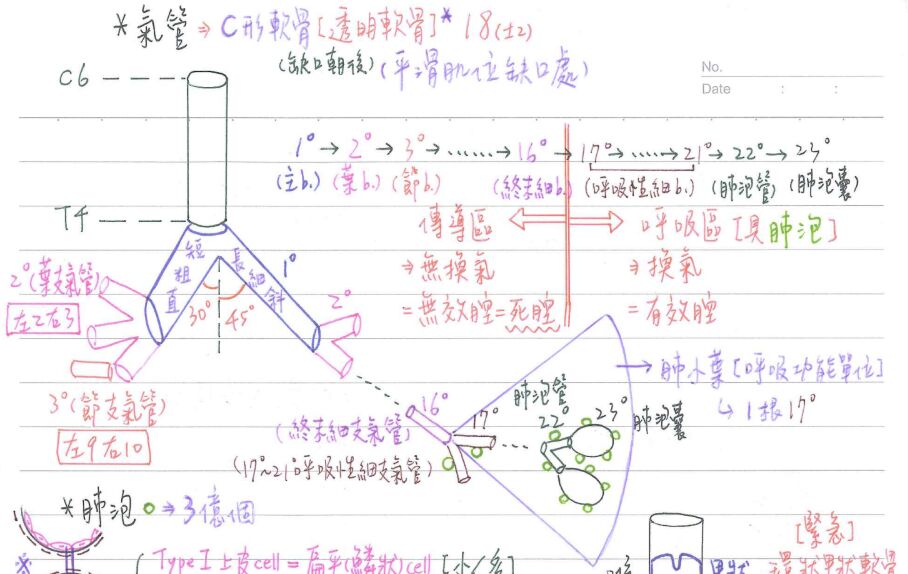 *氣管⇒C形軟骨[透明軟骨]* 18(±2)
(缺口朝後)(平滑肌位缺口處)
No.
Date : :
C6
T4
1°→2°→3°→……→16°→17°→……→21°→22°→23°
(主b.)(葉b.)(節b.)(終末細b.)(呼吸性細b.)(肺泡管)(肺泡囊)
傳導區 呼吸區[具肺泡]
⇒無換氣 ⇒換氣
=無效腔=死腔 =有效腔
短粗直
長細斜
1°
30° 45°
2°(葉支氣管)
左2右3
2°
3°(節支氣管)
左9右10
→肺小葉[呼吸功能單位]
↳1根17°
16°
17°
肺泡管
22°
23°
肺泡囊
(終末細支氣管)
(17°~21°呼吸性細支氣管)
*肺泡○⇒3億個
Type I 上皮cell=扁平(鱗狀)cell[小/多]
[緊急]
環狀甲狀軟骨